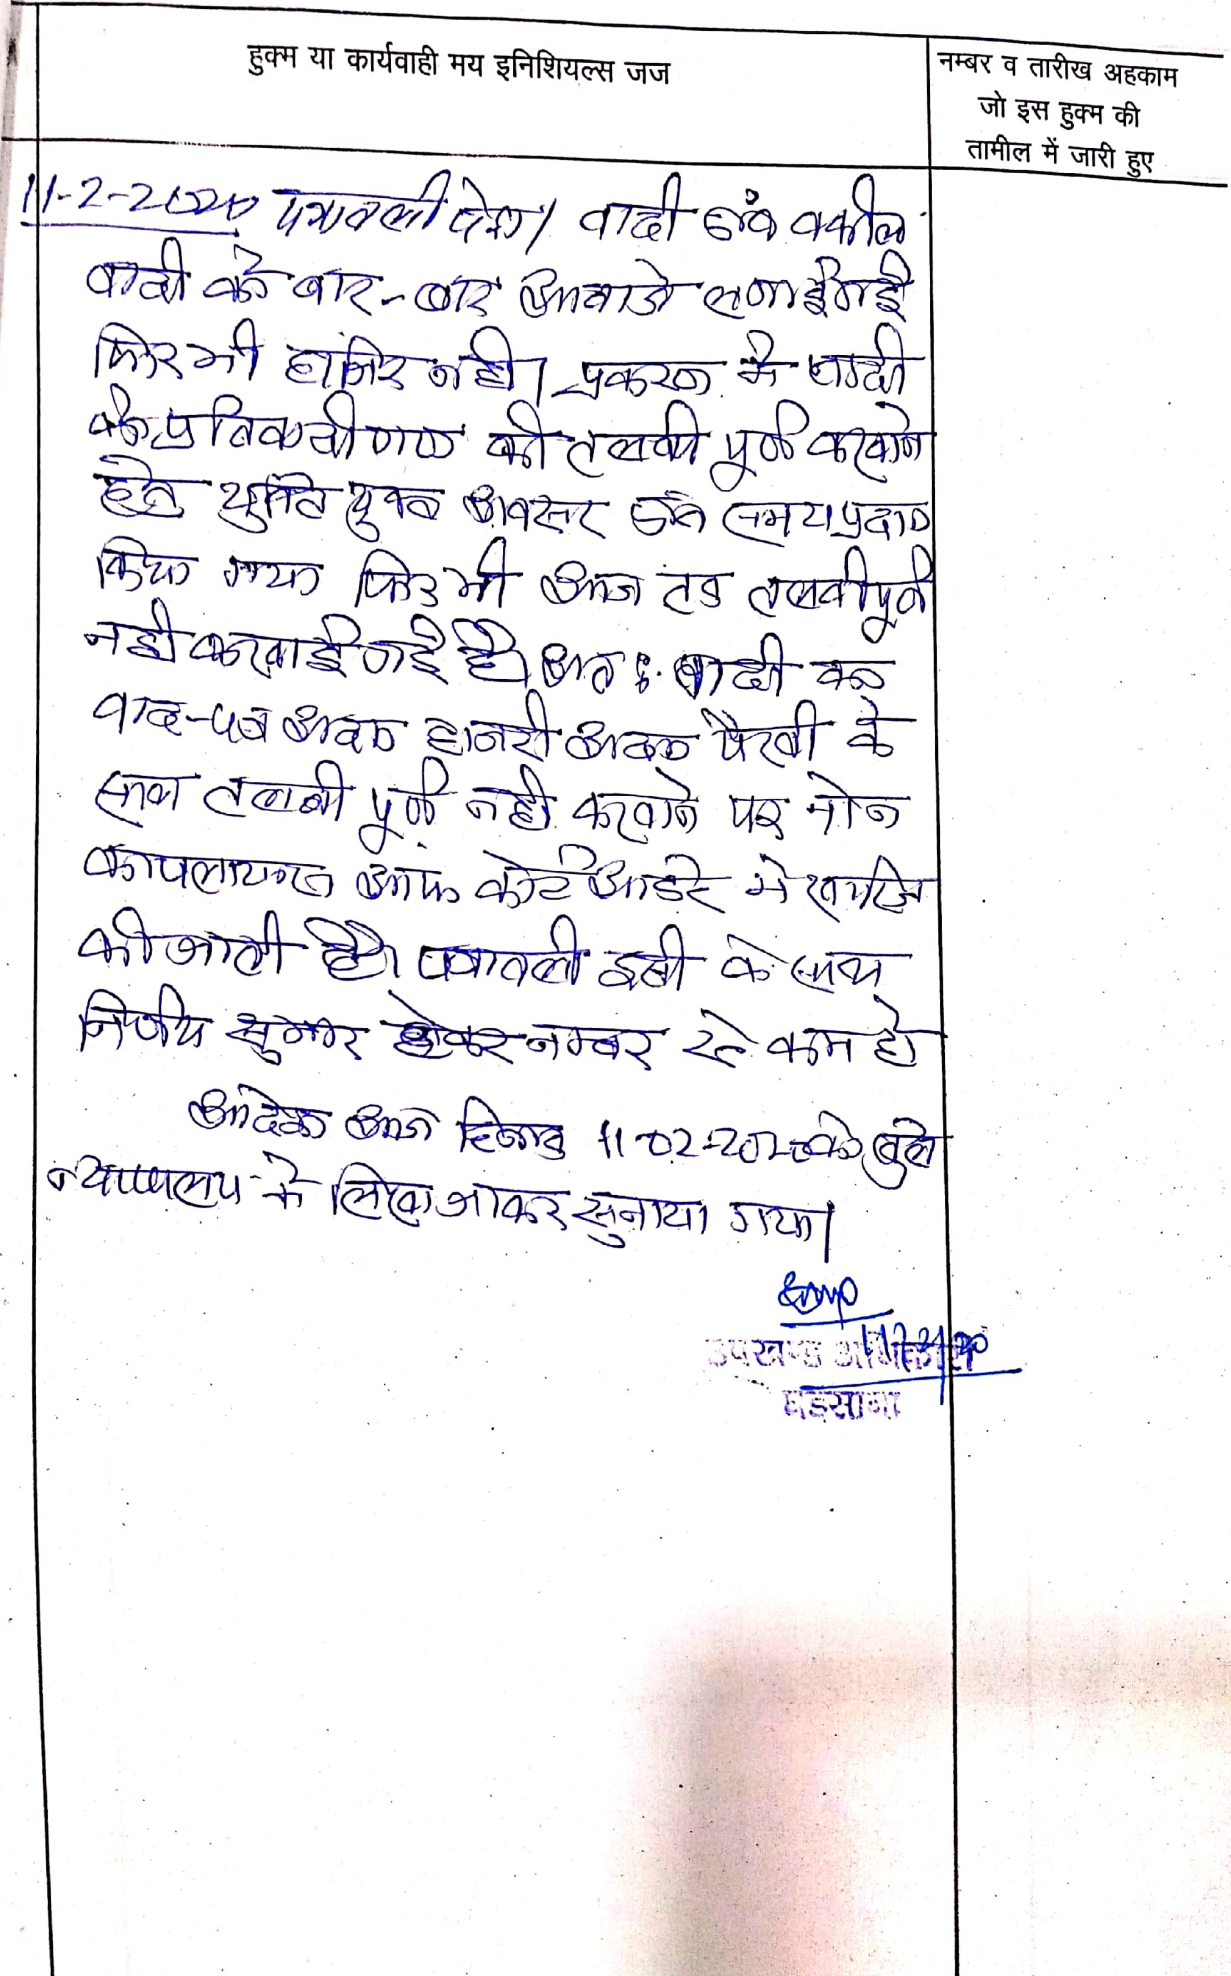 हुक्म या कार्यवाही मय इनिशियल्स जज
नम्बर व तारीख अहकाम
जो इस हुक्म की
तामील में जारी हुए
11-2-2020 पत्रावली पेश। वादी एवं वकील
वादी को बार-बार आवाजे लगाई गई
फिर भी हाजिर नही। प्रकरण मे वादी
को प्रतिवादीगण की तलबी पूर्ण करवाने
हेतु युक्ति युक्त अवसर एवं समय प्रदान
किया गया फिर भी आज तक तलबी पूर्ण
नही करवाई गई है। अतः वादी का
वाद-पत्र अदम हाजरी अदम पैरवी के
साथ तलबी पूर्ण नही करवाने पर नोन
काम्पलायन्स आफ कोर्ट आर्डर मे खारिज
की जाती है। पत्रावली इसी के साथ
निर्णय सुमार होकर नम्बर से कम हो
आदेश आज दिनांक 11-02-2020 को खुले
न्यायालय मे लिखा जाकर सुनाया गया।
11/2/20
उपखण्ड अधिकारी
घड़साना